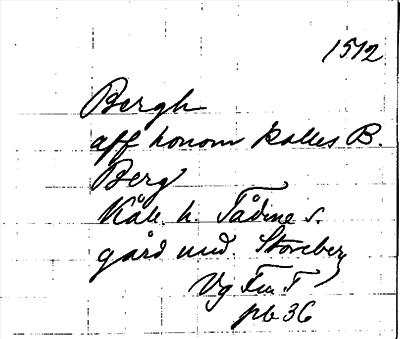 1512
Bergh
aff honom kalles B.
Berg
Kåll. h. Tådene s.
gård und. Storeberg
Vg Fru T
pb 36